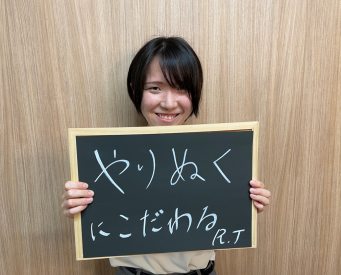 やりぬく
にこだわる
R.T